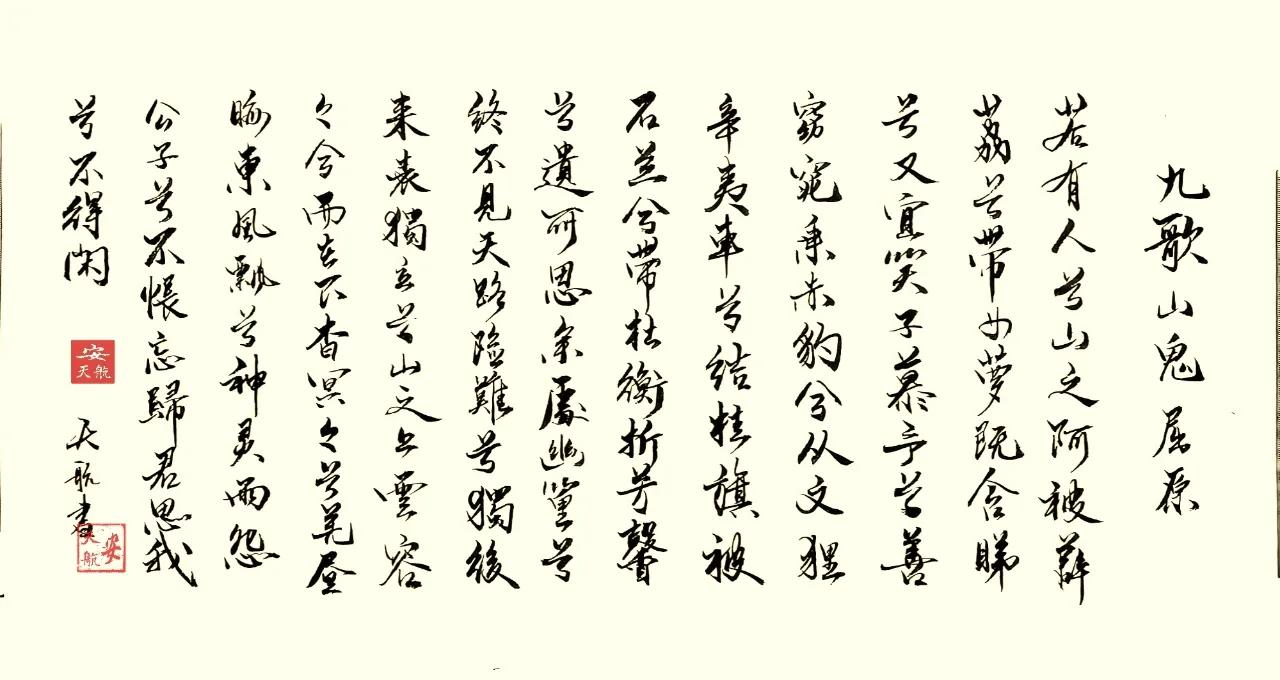 九歌山鬼 屈原
若有人兮山之阿被薜
荔兮带女萝既含睇
兮又宜笑子慕予兮善
窈窕乘赤豹兮从文狸
辛夷車兮结桂旗被
石兰兮带杜衡折芳馨
兮遺所思余處幽篁兮
終不見天路险難兮獨後
来表獨立兮山之上雲容
々兮而在下杳冥々兮羌昼
晦東風飄兮神灵雨怨
公子兮不悵忘歸君思我
兮不得闲
安天航
天航書
安天航